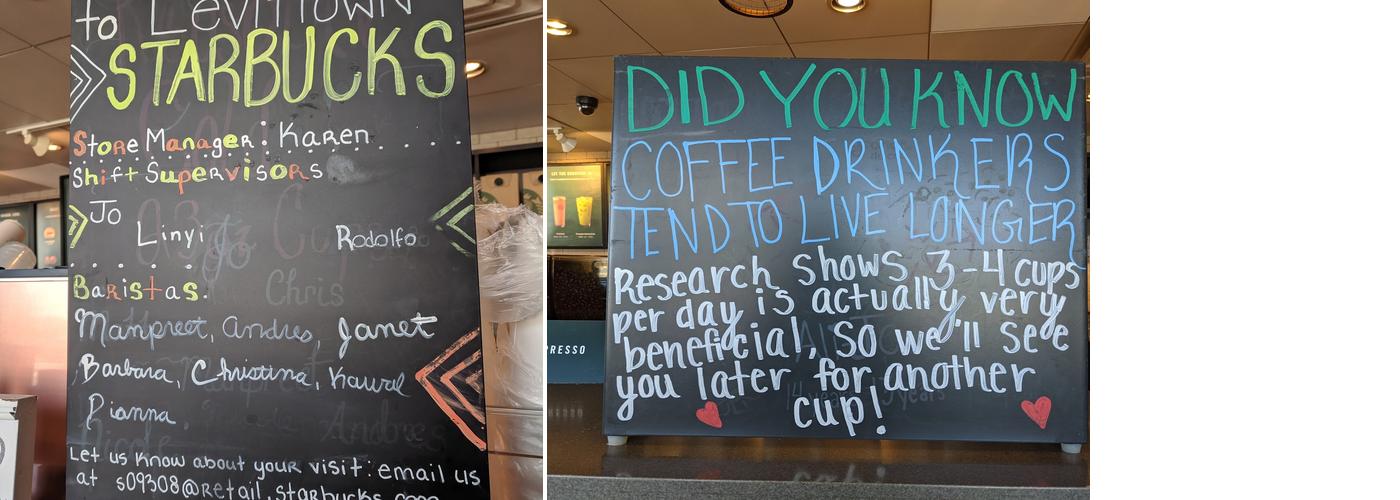 to Levittown
STARBUCKS
Store Manager: Karen....
Shift Supervisors
Jo
Linyi Rodolfo
Baristas.
Manpreet, Andres, Janet
Barbara, Christina, Kawal
Rianna,
Let us know about your visit: email us
at s09308@retail.starbucks.com
DID YOU KNOW
COFFEE DRINKERS
TEND TO LIVE LONGER
Research shows 3-4 cups
per day is actually very
beneficial, so we'll see
you later for another
cup!
LET THE
PRESSO